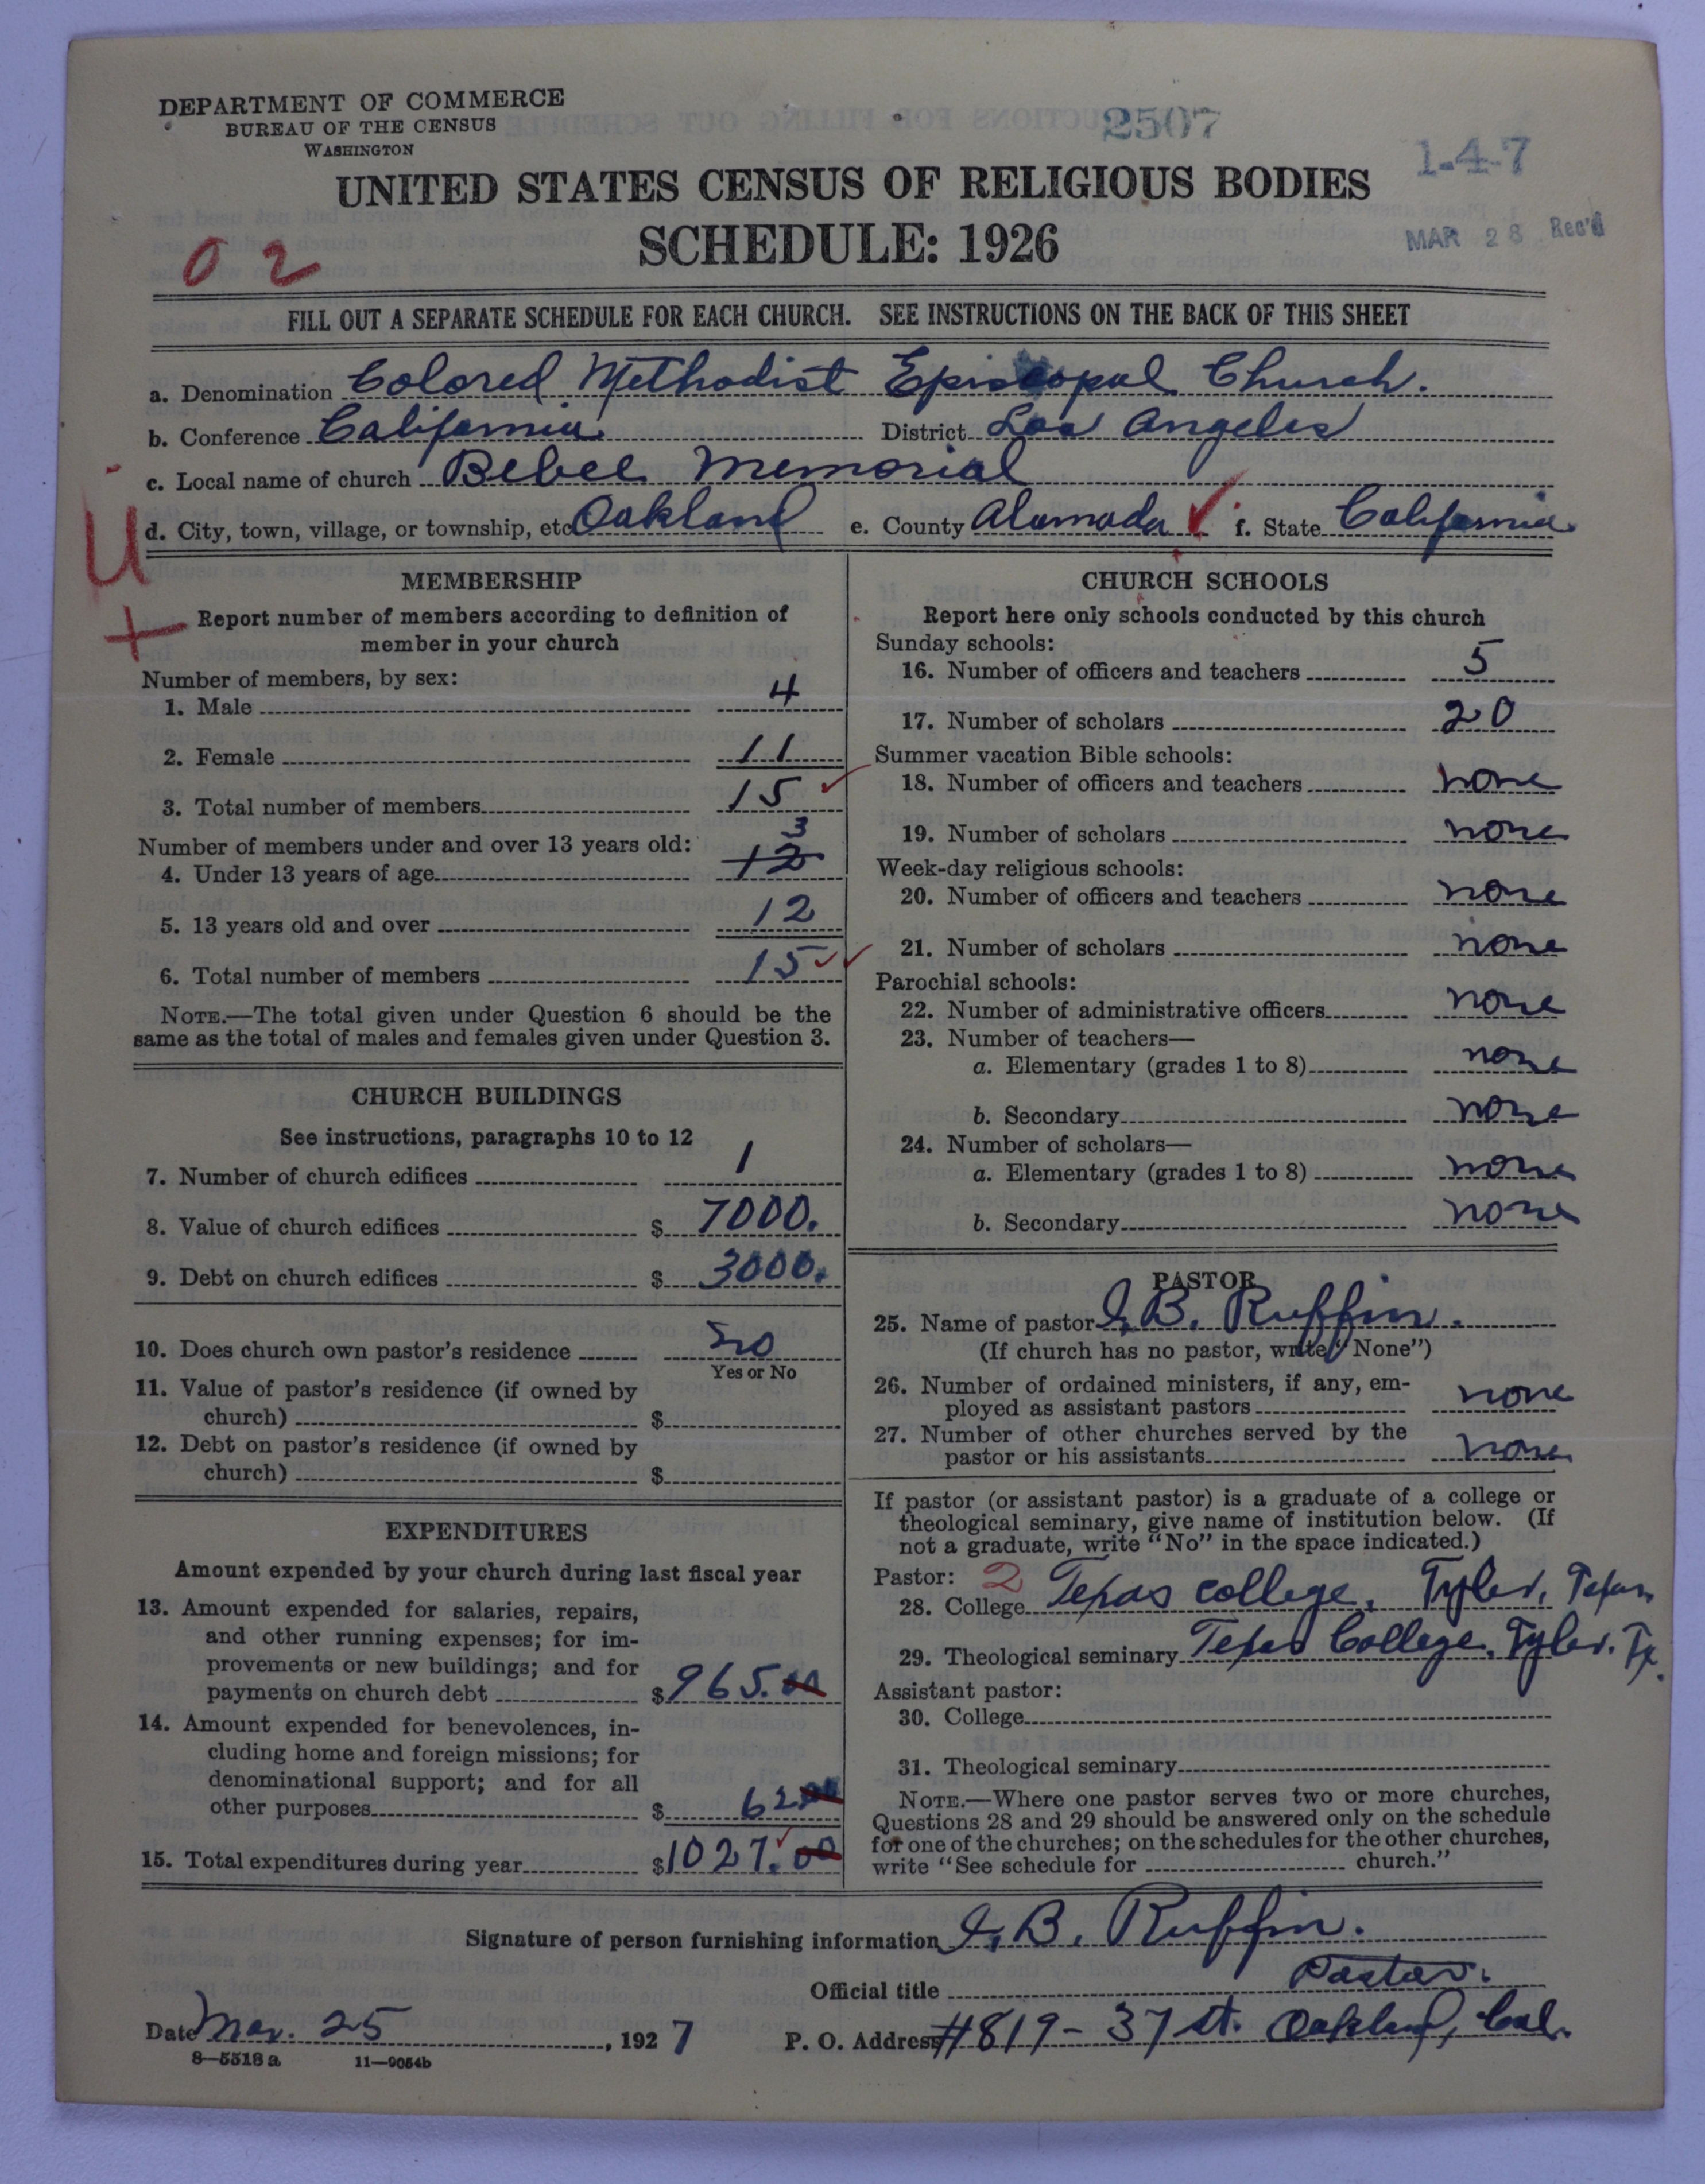 DEPARTMENT OF COMMERCE
BUREAU OF THE CENSUS
WASHINGTON
2507
1-4-7
UNITED STATES CENSUS OF RELIGIOUS BODIES
SCHEDULE: 1926
MAR 28 Rec'd
02
FILL OUT A SEPARATE SCHEDULE FOR EACH CHURCH. SEE INSTRUCTIONS ON THE BACK OF THIS SHEET
a. Denomination Colored Methodist Episcopal Church.
b. Conference California. District Los Angeles
c. Local name of church Bebee Memorial
d. City, town, village, or township, etc Oakland e. County Alameda f. State California
U
+
MEMBERSHIP
Report number of members according to definition of
member in your church
Number of members, by sex:
1. Male 4
2. Female 11
3. Total number of members 15
Number of members under and over 13 years old: 3
4. Under 13 years of age 12
5. 13 years old and over 12
6. Total number of members 15
NOTE.—The total given under Question 6 should be the
same as the total of males and females given under Question 3.
CHURCH BUILDINGS
See instructions, paragraphs 10 to 12
7. Number of church edifices 1
8. Value of church edifices $ 7000.
9. Debt on church edifices $ 3000.
10. Does church own pastor's residence no
Yes or No
11. Value of pastor's residence (if owned by
church) $
12. Debt on pastor's residence (if owned by
church) $
EXPENDITURES
Amount expended by your church during last fiscal year
13. Amount expended for salaries, repairs,
and other running expenses; for im-
provements or new buildings; and for
payments on church debt $ 965.00
14. Amount expended for benevolences, in-
cluding home and foreign missions; for
denominational support; and for all
other purposes $ 62.00
15. Total expenditures during year $ 1027.00
CHURCH SCHOOLS
Report here only schools conducted by this church
Sunday schools:
16. Number of officers and teachers 5
17. Number of scholars 20
Summer vacation Bible schools:
18. Number of officers and teachers none
19. Number of scholars none
Week-day religious schools:
20. Number of officers and teachers none
21. Number of scholars none
Parochial schools:
22. Number of administrative officers none
23. Number of teachers—
a. Elementary (grades 1 to 8) none
b. Secondary none
24. Number of scholars—
a. Elementary (grades 1 to 8) none
b. Secondary none
PASTOR
25. Name of pastor I. B. Ruffin.
(If church has no pastor, write "None")
26. Number of ordained ministers, if any, em-
ployed as assistant pastors none
27. Number of other churches served by the
pastor or his assistants none
If pastor (or assistant pastor) is a graduate of a college or
theological seminary, give name of institution below. (If
not a graduate, write "No" in the space indicated.)
Pastor: 2
28. College Texas college, Tyler, Texas
29. Theological seminary Texas College, Tyler. Tx.
Assistant pastor:
30. College
31. Theological seminary
NOTE.—Where one pastor serves two or more churches,
Questions 28 and 29 should be answered only on the schedule
for one of the churches; on the schedules for the other churches,
write "See schedule for church."
Signature of person furnishing information I. B. Ruffin.
Official title Pastor.
Date Mar. 25, 1927 P. O. Address #819-37 st. Oakland, Cal.
8—5518 a 11—9054b